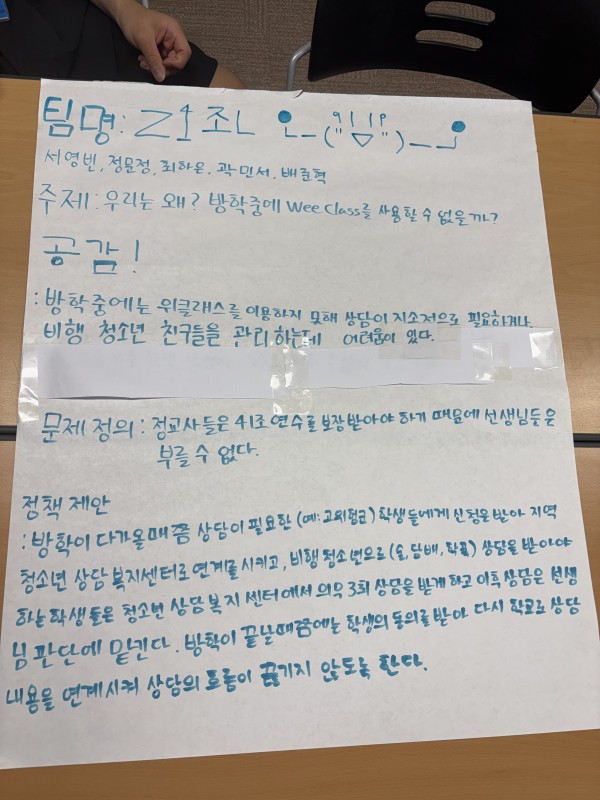 팀명: 21조
서영빈, 정문정, 최하은, 곽민서, 배준혁
주제: 우리는 왜? 방학중에 Wee Class를 사용할 수 없을까?
공감!
: 방학중에는 위클래스를 이용하지 못해 상담이 지소적으로 필요하거나
비행 청소년 친구들을 관리하는데 어려움이 있다.
문제 정의 : 정교사들은 41조 연수를 보장받아야 하기 때문에 선생님들은
부를 수 없다.
정책 제안
: 방학이 다가올때쯤 상담이 필요한 (예: 고위험군) 학생들에게 신청을 받아 지역
청소년 상담 복지센터로 연계를 시키고, 비행 청소년으로 (술, 담배, 학폭) 상담을 받아야
하는 학생들은 청소년 상담 복지 센터에서 의무 3회 상담을 받게 하고 이후 상담은 선생
님 판단에 맡긴다. 방학이 끝날때쯤에는 학생의 동의를 받아 다시 학교로 상담
내용을 연계시켜 상담의 흐름이 끊기지 않도록 한다.